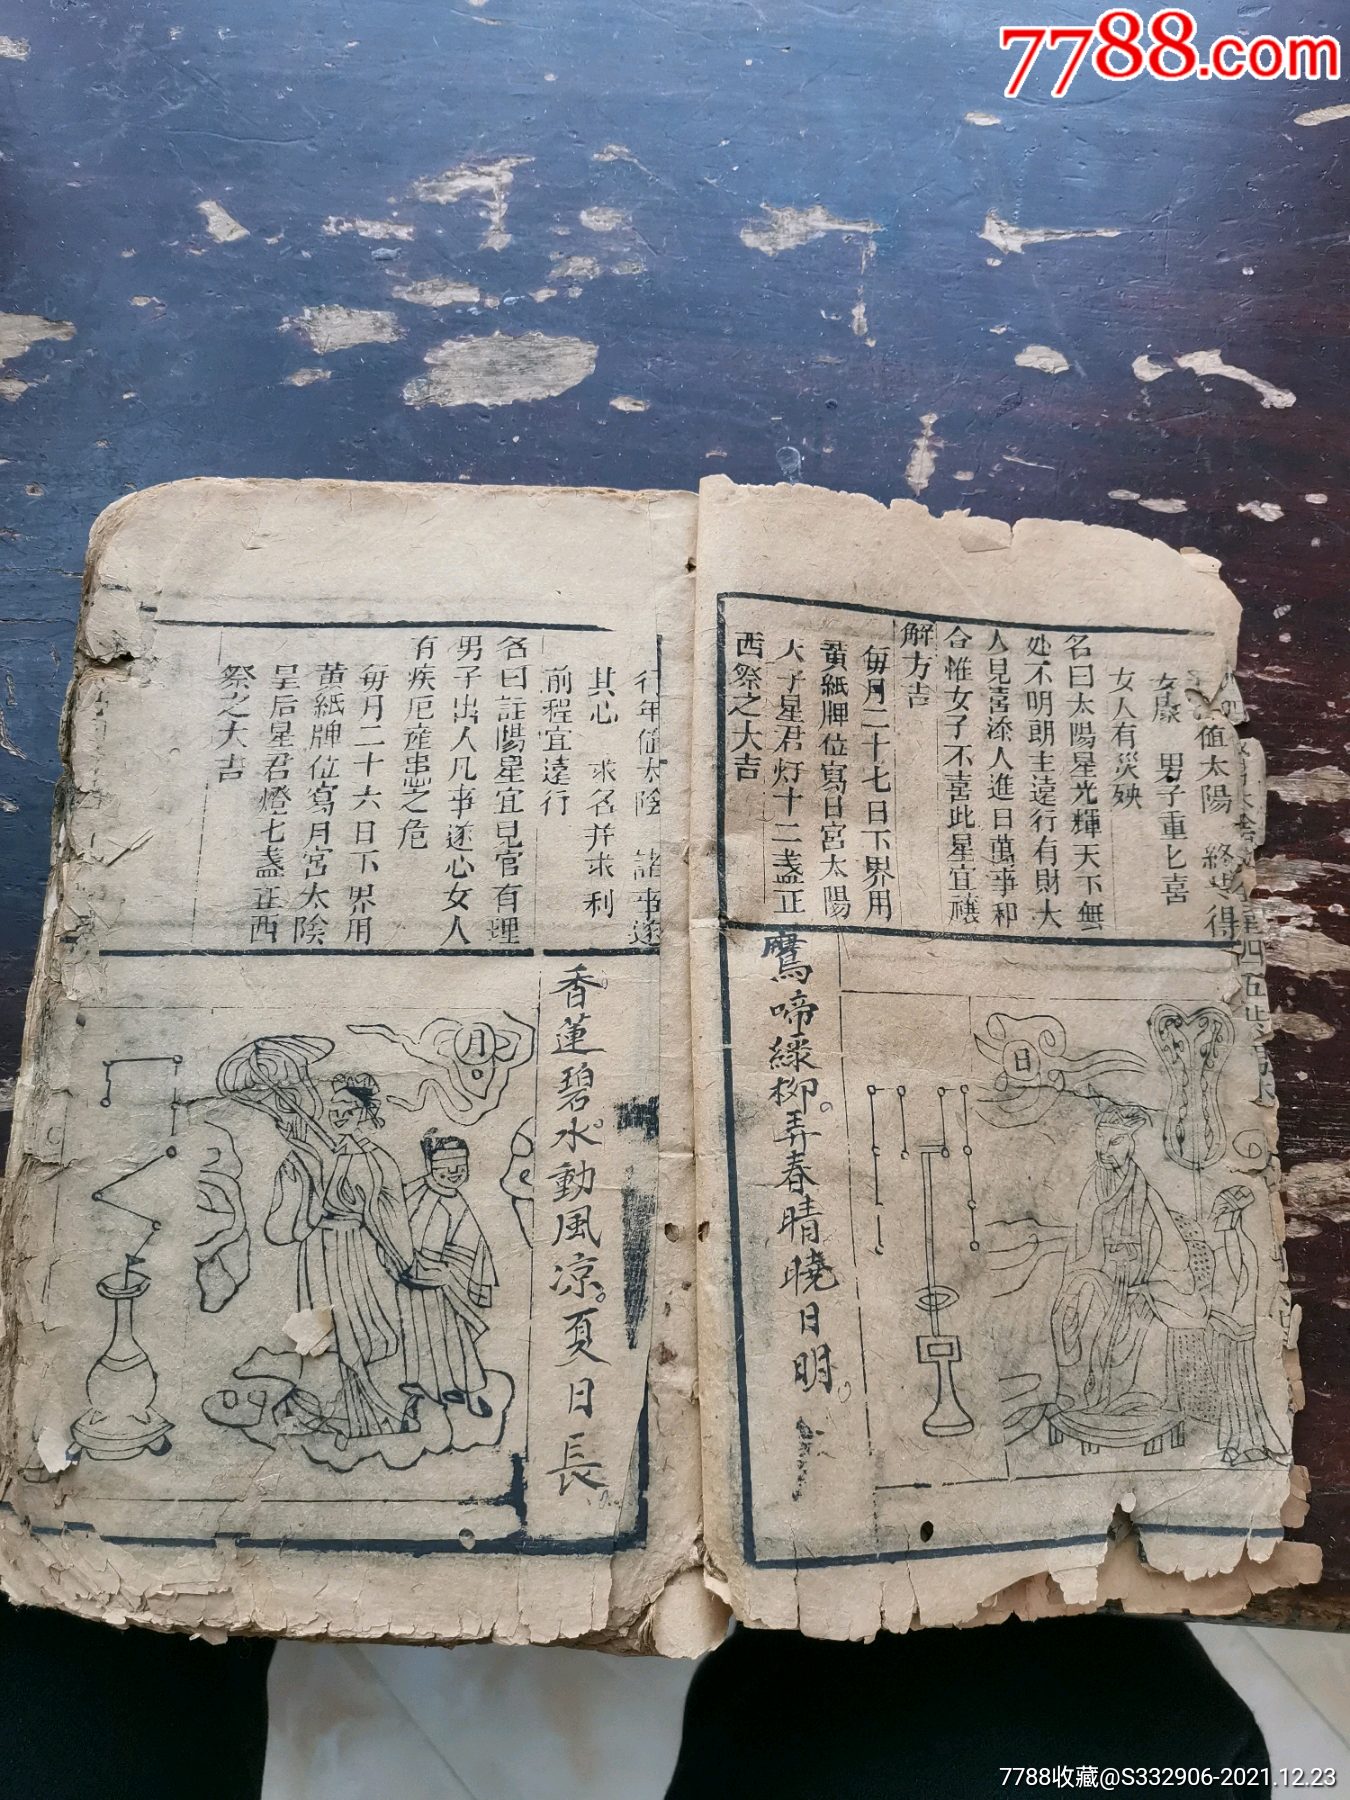 7788.com
值太陽 終得
女康 男子重七喜
女人有災殃
名曰太陽星光輝天下無
处不明朗主遠行有財大
人見喜添人進日萬事和
合惟女子不喜此星宜禳
解方吉
每月二十七日下界用
黃紙牌位寫日宮太陽
天子星君灯十二盞正
西祭之大吉
日
鶯啼綠柳弄春晴曉日明
行年值太陰 諸事遂
其心 求名并求利
前程宜遠行
名曰註陽星宜見官有理
男子出人凡事遂心女人
有疾厄產患之危
每月二十六日下界用
黃紙牌位寫月宮太陰
皇后星君燈七盞正西
祭之大吉
香蓮碧水動風凉夏日長
月
7788收藏@S332906-2021.12.23